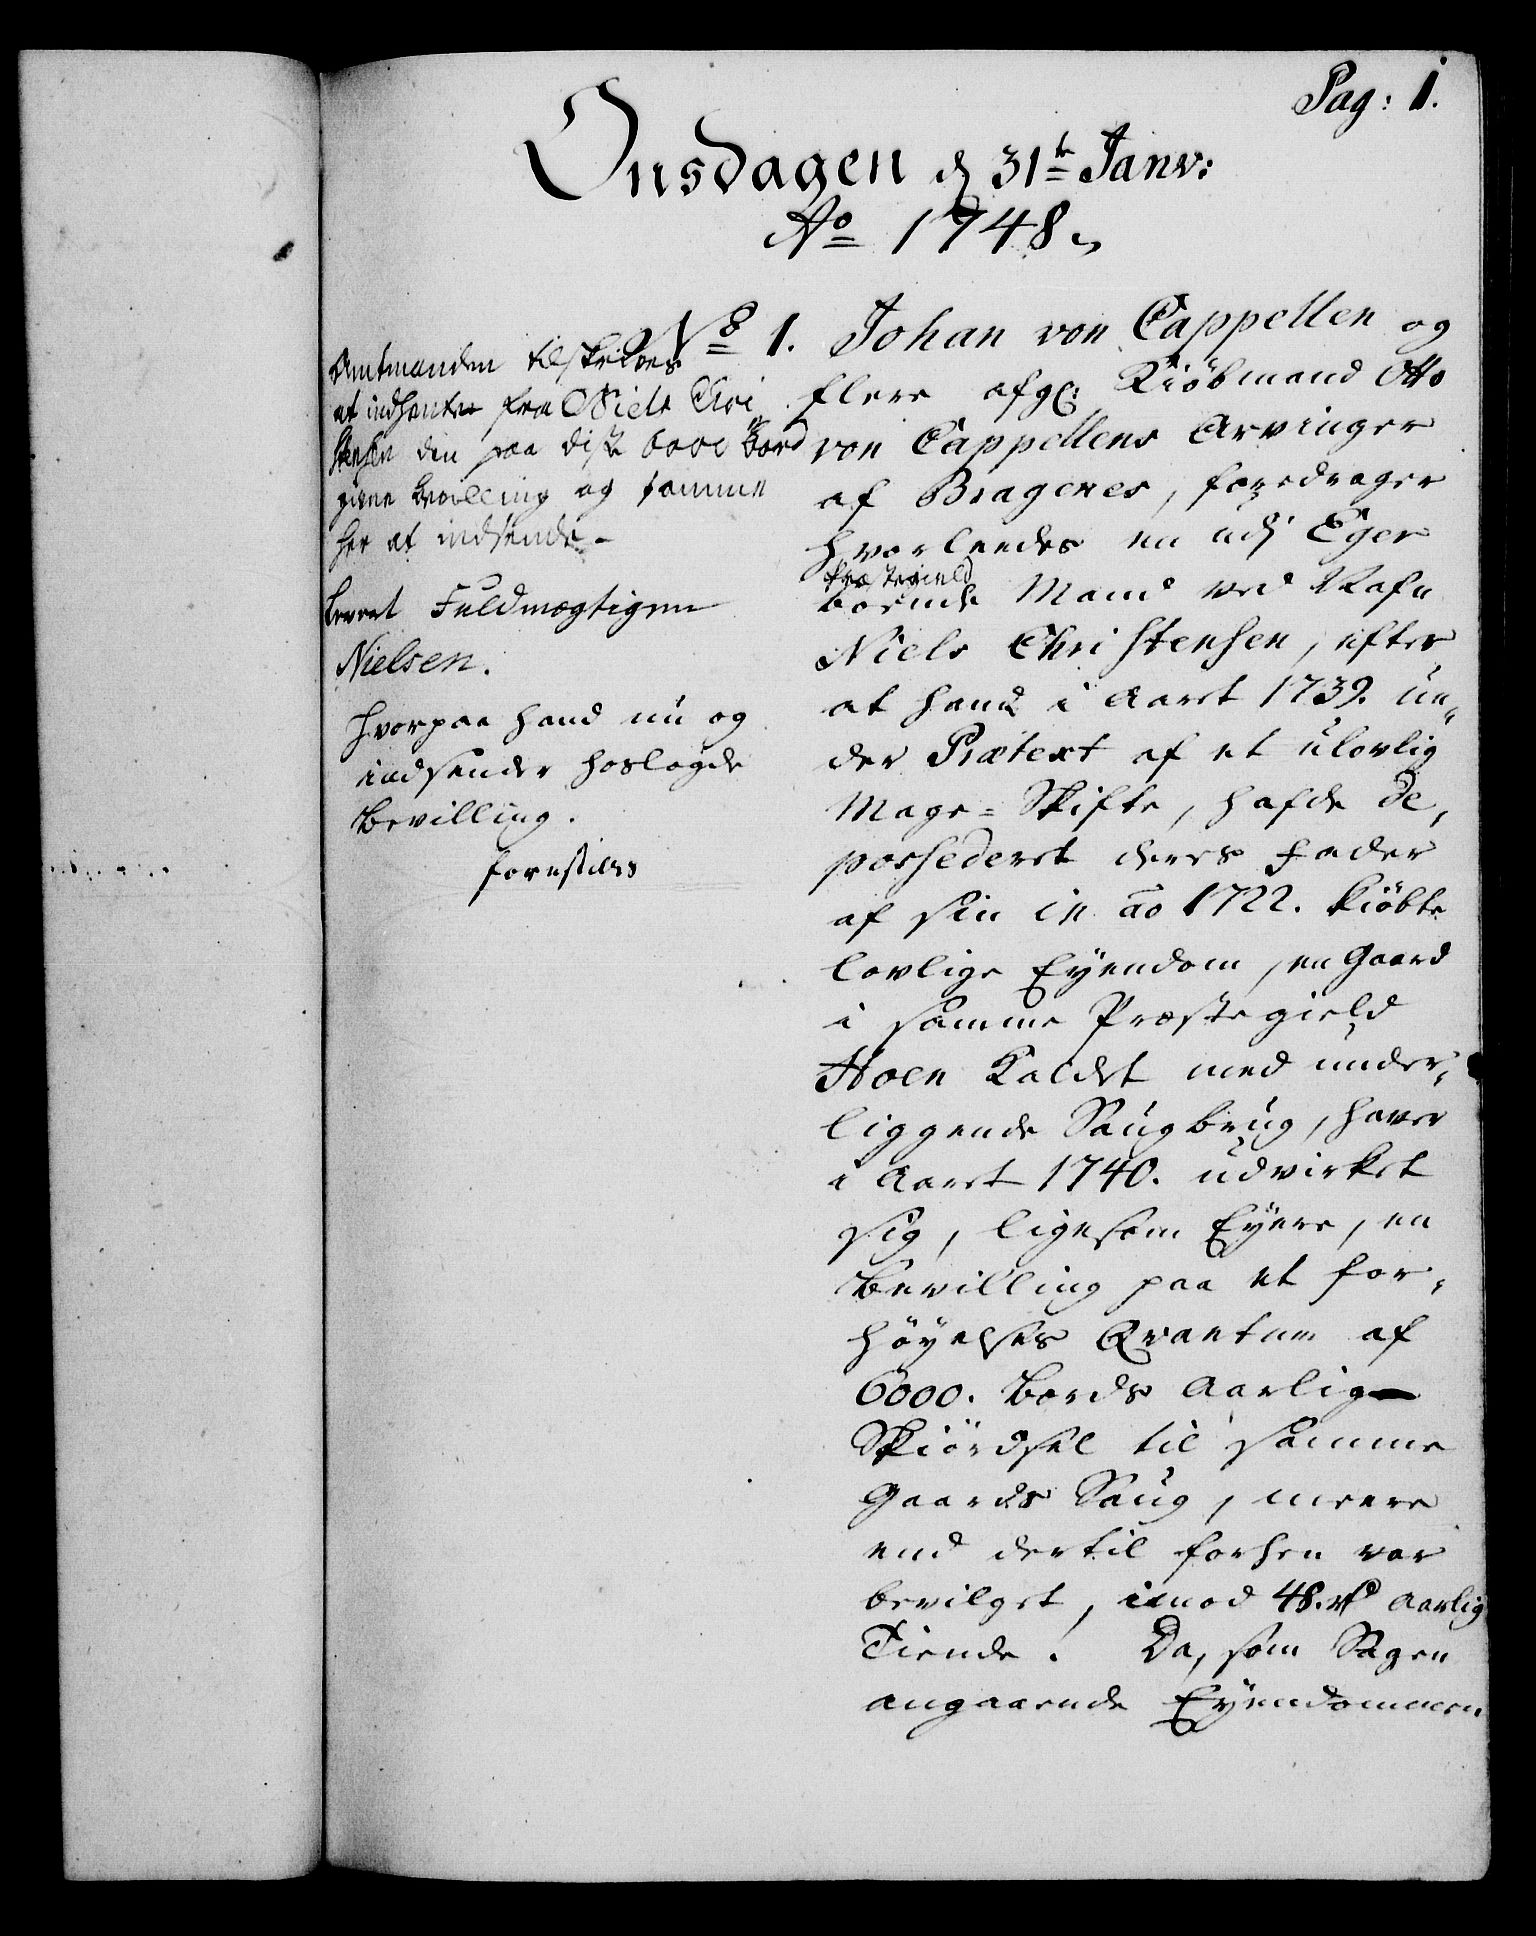 Pag: 1.
Onsdagen d 31te Janv:
Ao 1748.
No 1. Johan von Cappellen og
flere afg: Kiöbmand Otto
von Cappellens Arvinger
af Bragenes, foredrager
hvorleedes en udj Eger
Præstegield
boende Mand ved Nafn
Niels Christensen, efter
at hand i Aaret 1739. un,,
der Prætext af et ulovlig
Mage-Skifte, hafde de,,
possederet deres Fader
af sin in ao 1722. kiöbte
lovlige Eyendom, en Gaard
i samme Præstegield
Hoen kaldet med under,,
liggende Saugbrug, haver
i Aaret 1740. udvirket
sig, ligesom Eyere, en
Bevilling paa et for,,
höyelses Qvantum af
6000. Bords Aarlig
Skiördsel til samme
Gaards Saug, meere
end dertil forhen var
bevilget, imod 48. rd Aarlig
Tiende. Da, som Sagen
angaaende Eyendommen
Amtmanden tilskrives
at indhente fra Niels Chri
stensen den paa disse 6000 Bord
givne Bevilling og samme
her at indsende.
Fuldmægtigen
Nielsen.
hvorpaa hand nu og
indsender hoslagde
Bevilling.
forestilles